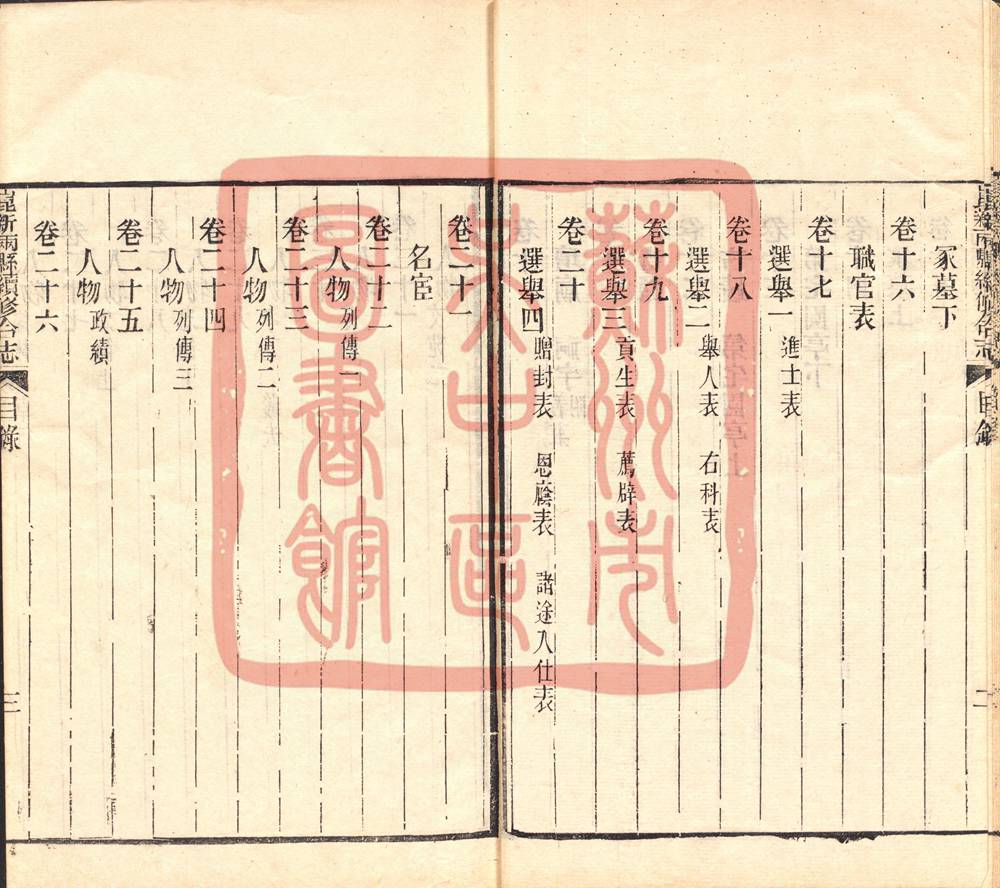 冢墓下
卷十六
職官表
卷十七
選舉一 進士表
卷十八
選舉二 舉人表 右科表
卷十九
選舉三 貢生表 薦辟表
卷二十
選舉四 贈封表 恩廕表 諸途入仕表
卷二十一
名宦
卷二十二
人物 列傳一
卷二十三
人物 列傳二
卷二十四
人物 列傳三
卷二十五
人物 政績
卷二十六
崑新兩縣續修合志
目錄
二
崑新兩縣續修合志
目錄
三
蘇州市
吳中區
圖書館